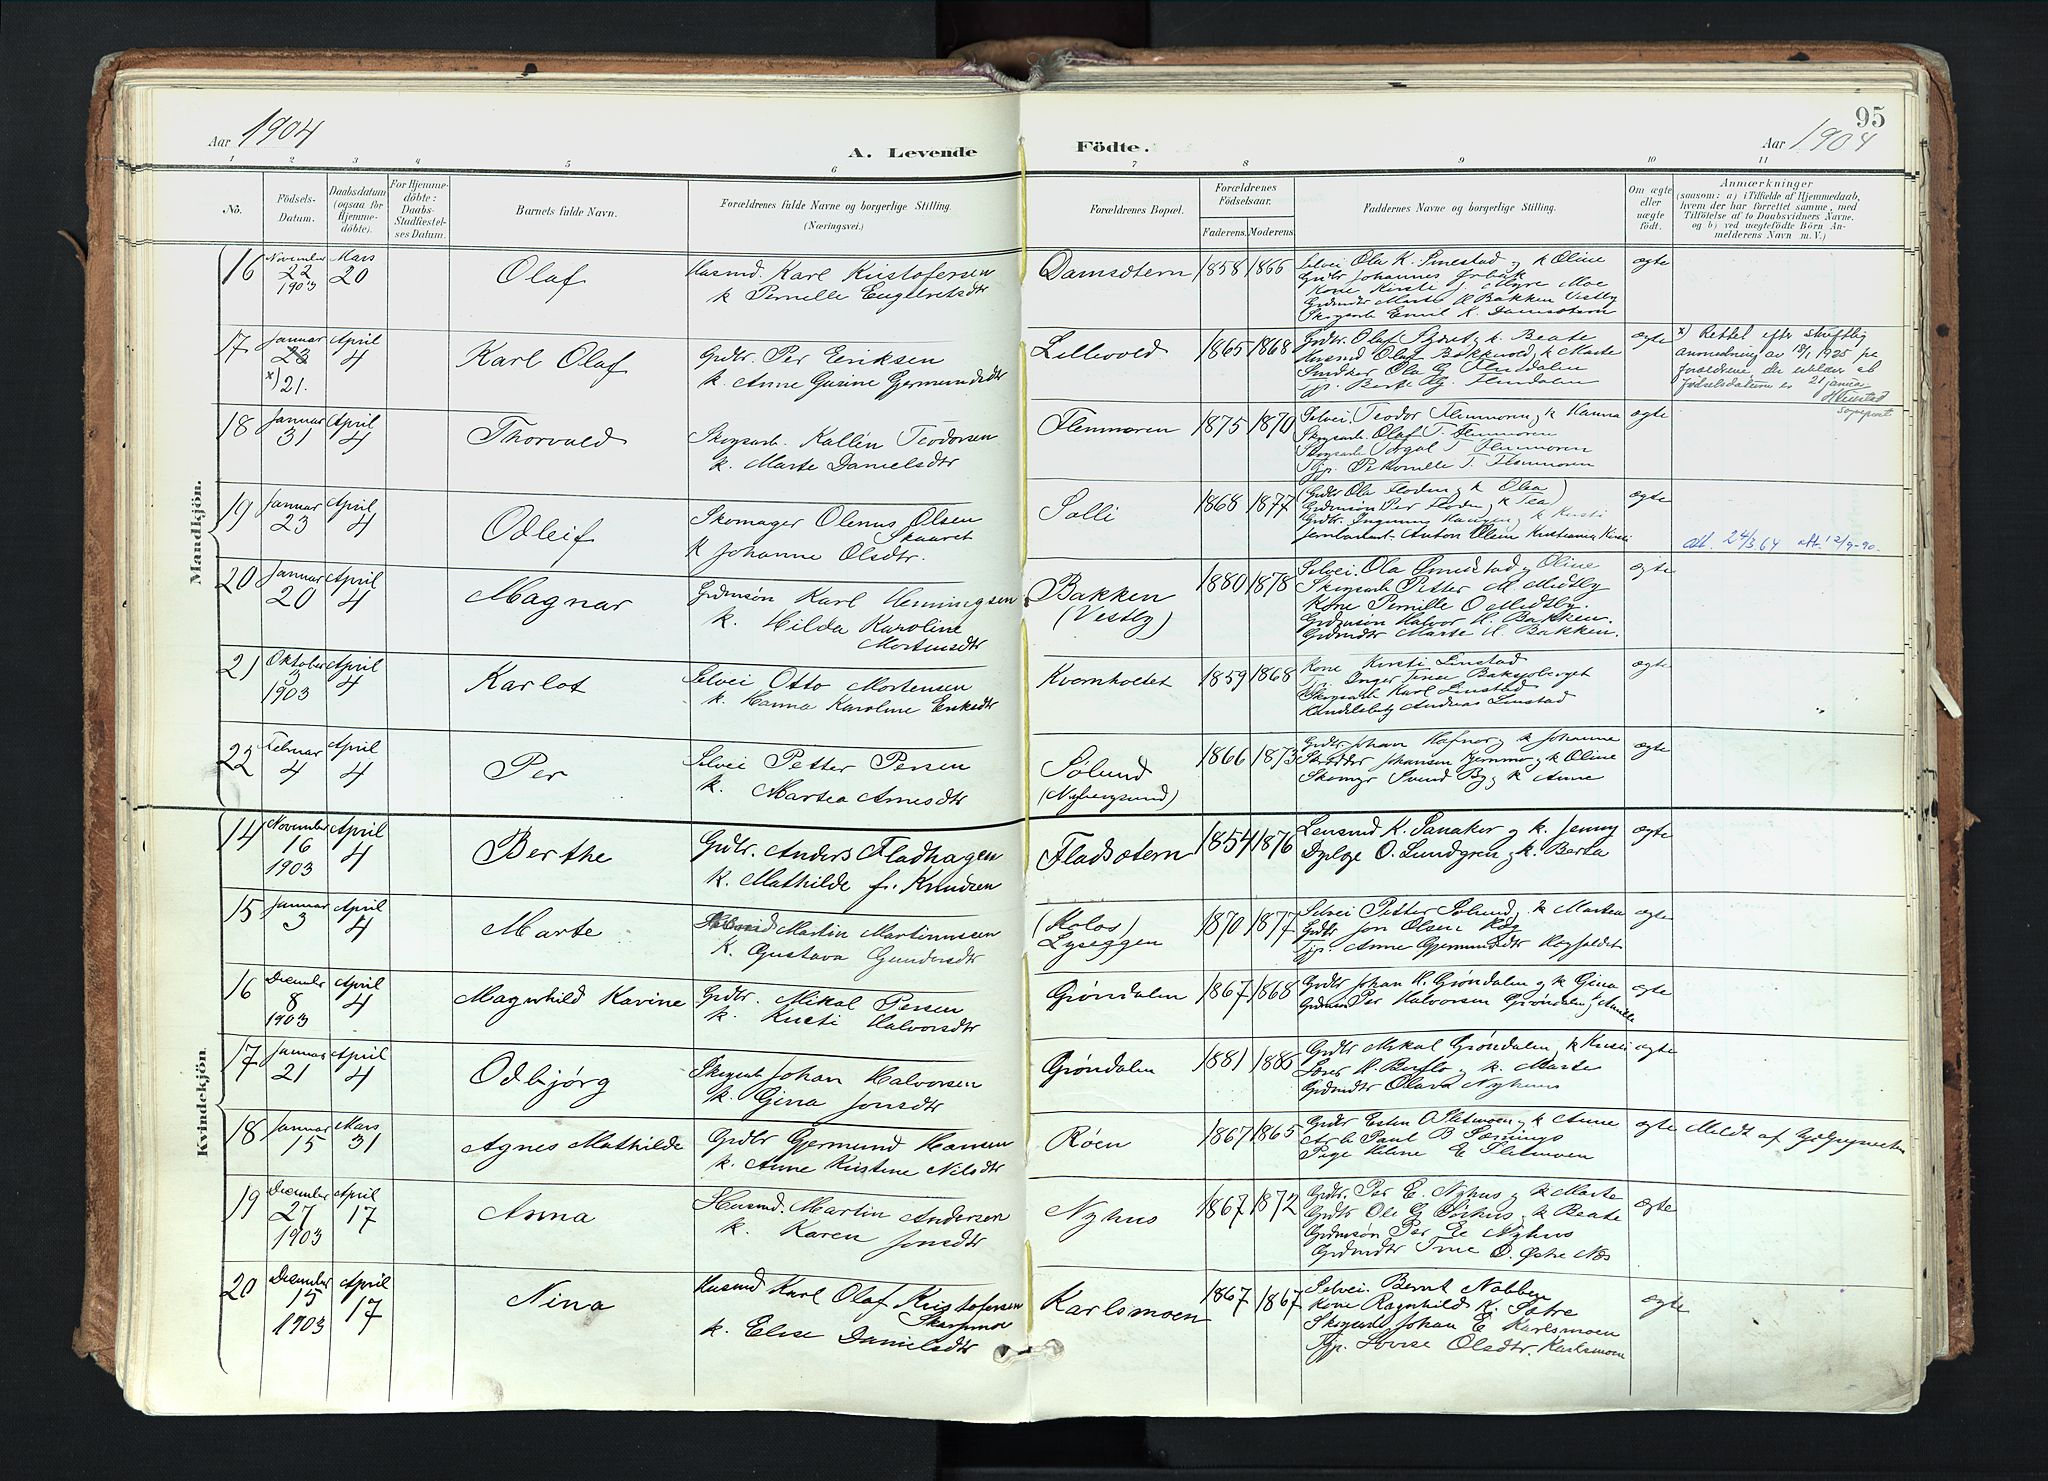 Aar 1904
A. Levende
Födte.
95
Aar 1904
1 2 3 4 5 6 7 8 9 10 11
No.
Födsels-
Datum.
Daabsdatum
(ogsaa for
Hjemme-
döbte).
For Hjemme-
döbte:
Daabs-
Stadfæstel-
ses Datum.
Barnets fulde Navn.
Forældrenes fulde Navne og borgerlige Stilling.
(Næringsvei.)
Forældrenes Bopæl.
Forældrenes
Födselsaar.
Faderens. Moderens.
Faddernes Navne og borgerlige Stilling.
Om ægte
eller
uægte
födt.
Anmærkninger
(saasom: a) i Tilfælde af Hjemmedaab,
hvem der har forrettet samme, med
Tilföielse af to Daabsvidners Navne,
og b) ved uægtefödte Börn An-
melderens Navn m. V.)
Mandkjön.
16 November 22 1903 Mars 20 Olaf
Husmd. Karl Kristofersen
k Pernille Engebretsdtr
Damsætern 1858 1866
Selvei Ola K. Smestad og k Oline
Grdbr Johannes
Kone Kirsti J. Myre Moe
Grdmdtr Marte H Bakken Vestby
Skogsarb Emil K. Damsætern
ægte
17 Januar 23 x) 21. April 4 Karl Olaf
Grdbr. Per Eriksen
k. Anne Gurine Gjermundsdtr
Lillevold 1865 1868
Grdbr. Olaf k. Beate
Husmd Olaf Bakkevold, k Marte
Ola G. Flendalen
Pj. Berte Flendalen
ægte
x) Rettet efter skriftlig
anordning av 19/1 1925 på
forældrene, der erklærer at
Födselsdatum er 21 januar
sogneprest
18 Januar 31 April 4 Thorvald
Skogsarb. Kallén Teodorsen
k. Marte Danielsdtr
Flenmoren 1875 1870
Selvei Teodor Flenmoren og k Hanna
Skogsarb. Olaf T. Flenmoren
Skogsarb Torgal T Flenmoren
Pj. Pernille T. Flenmoren
ægte
19 Januar 23 April 4 Odleif
Skomager Olenus Olsen
Skaaret
k Johanne Olsdtr.
Solli 1868 1877
(Grdbr Ola Floden og k Olea)
Grdmsön Per Floden, k Tea
Grdbr. Ingemus Haugen, k Kirsti
Jernbarbeit. Anton Olsen Kristiania
ægte
att. 24/3 64 att. 12/9-90.
20 Januar 20 April 4 Magnar
Grdmsön Karl Henningsen
k. Hilda Karoline
Mortensdtr
Bakken
(Vestby)
1880 1878
Selvei. Ola Smestad og Oline
Skogsarb Petter M Midtby
Kone Pernille O Midtby.
Grdmsön Halvor H. Bakken.
Grdmdtr Marte H. Bakken.
ægte
21 Oktober 3 1903 April 4 Karlot
Selvei Otto Mortensen
k. Hanna Karoline Eriksdtr
Kvernholtet 1859 1868
Kone Kirsti Linstad
Pj. Inger Tonee Baksjøberget
Skogsarb Karl Linstad
Handelsbetj Andreas Linstad
ægte
22 Februar 4 April 4 Per
Selvei Petter Persen
k. Martea Arnesdtr
Sølund
(Nybergsund)
1866 1873
Grdbr. Johan Hafnor og k Johanne
Skrædder Johansen Hjemmo og k Oline
Skomgr Svend By og k Anne
ægte
Kvindekjön.
14 November 16 1903 April 4 Berthe
Grdbr. Anders Fladhagen
k. Mathilde f. Knudsen
Fladsætern 1854 1876
Lensmd K. Sanaker og k. Jenny
Dyrlæge O. Lundgren og k. Berta
ægte
15 Januar 3 April 4 Marte
Martin Martinussen
k. Gustava Gundersdtr
(Kolos)
Lyseggen
1870 1877
Selvei Petter Sølund, k Martea
Grdbr Jon Olsen
Pj. Anne Gjermundsdtr
ægte
16 December 8 1903 April 4 Magnhild Karine
Grdbr. Mikal Persen
k. Kirsti Halvorsdtr
Grøndalen 1867 1868
Grdbr Johan H. Grøndalen og k Gina
Grdmsön Per Halvorsen Grøndalen
ægte
17 Januar 21 April 4 Odbjørg
Skogsarb Johan Halvorsen
k. Gina Jonsdtr
Grøndalen 1881 1885
Grdbr Mikal Grøndalen, k Kirsti
Lærer H. Berflo og k. Marte
Grdmdtr Olava Nyhuus
ægte
18 Januar 15 Mars 31 Agnes Mathilde
Grdbr Gjermund Hansen
k. Anne Kristine Nilsdtr
Røen 1867 1865
Grdbr Esten O Sletmoen og k Anne
Arb Paul B Sæming
Pige Helene E Sletmoen
ægte
Meldt af
19 December 27 1903 April 17 Anna
Husmd. Martin Andersen
k. Karen Jonsdtr
Nyhus 1867 1872
Grdbr. Per E. Nyhus og k Marte
Grdbr Ole G. Sørhus, k Beate
Grdmsön Per E. Nyhus
Grdmdtr Tine O. Østre Næs
ægte
20 December 15 1903 April 17 Nina
Husmd Karl Olaf Kristofersen
Skarpmoe
k. Elise Danielsdtr
Karlsmoen 1867 1867
Selvei. Bernt Nabben
Kone Ragnhild K. Sætre
Skogsarb Johan E Karlsmoen
Pj. Lovise Olsdtr. Karlsmoen
ægte